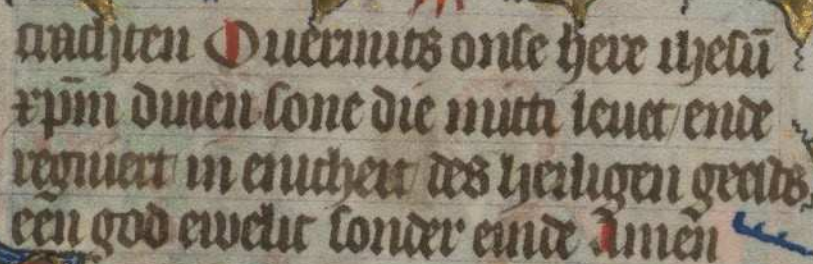 trachten Ouermits onse here ihesū
xp̄m dinen sone die mitti leuet/ende
regniert in enicheit des heiligen geests
een god ewelic sonder einde Amen